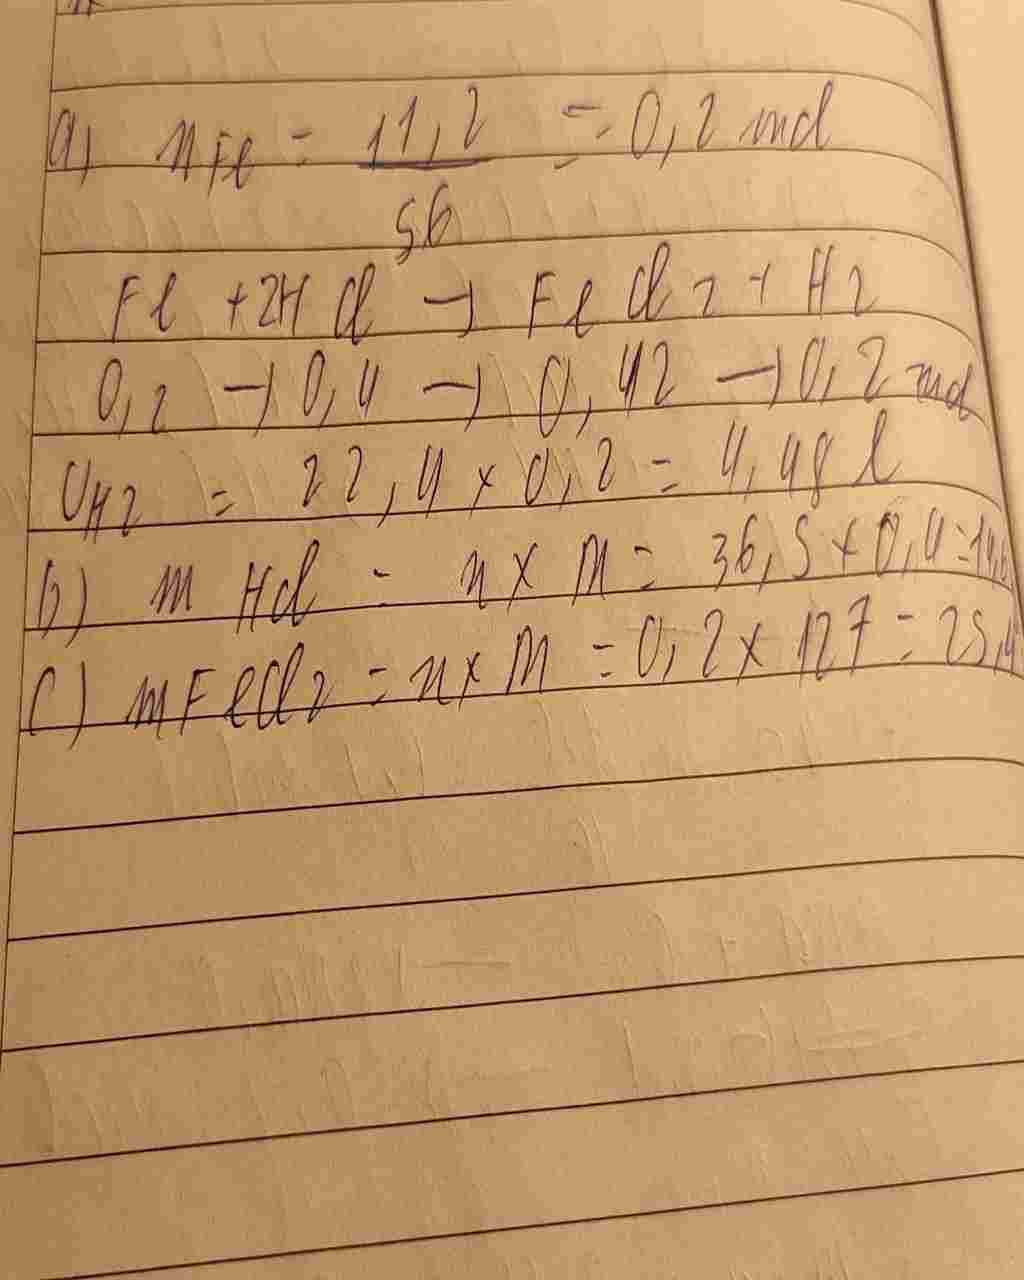 a) nFe = 11,2 / 56 = 0,2 mol
Fe + 2HCl → FeCl2 + H2
0,2 → 0,4 → 0,42 → 0,2 mol
VH2 = 22,4 x 0,2 = 4,48 l
b) m HCl = n x M = 36,5 x 0,4 = 14,6
c) mFeCl2 = n x M = 0,2 x 127 = 25,4